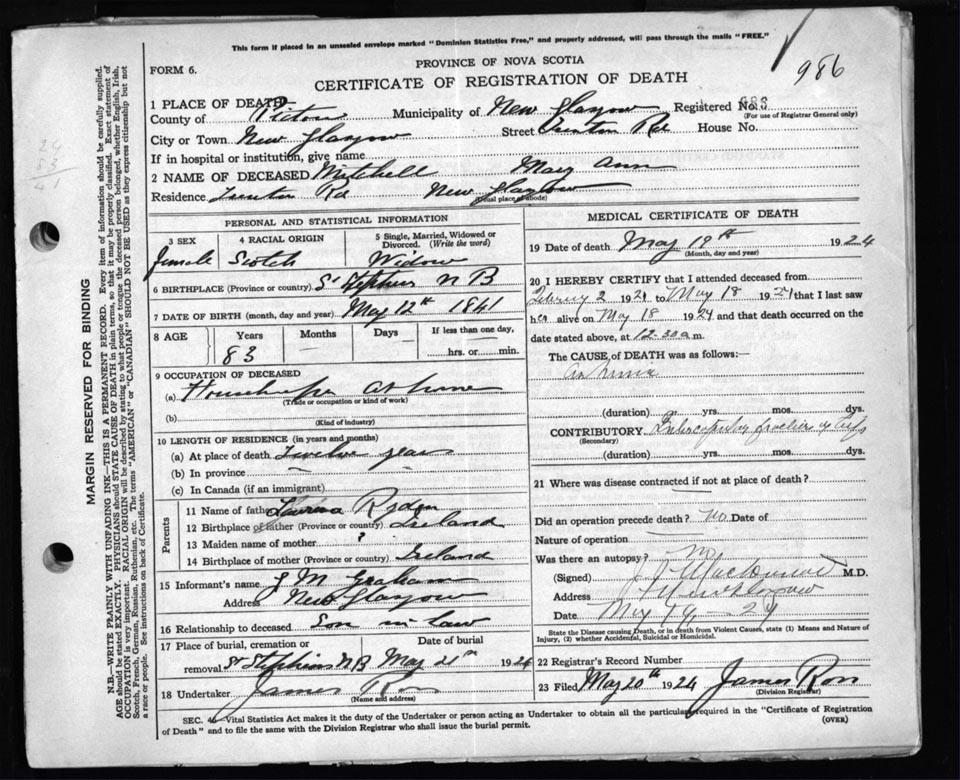 This form if placed in an unsealed envelope marked "Dominion Statistics Free," and properly addressed, will pass through the mails "FREE."
PROVINCE OF NOVA SCOTIA
FORM 6.
CERTIFICATE OF REGISTRATION OF DEATH
986
1 PLACE OF DEATH
County of Pictou Municipality of New Glasgow Registered No. 988
(For use of Registrar General only)
City or Town New Glasgow Street Rd House No.
If in hospital or institution, give name
2 NAME OF DECEASED Mitchell Mary Ann
Residence Rd New Glasgow
(Usual place of abode)
PERSONAL AND STATISTICAL INFORMATION
3 SEX 4 RACIAL ORIGIN 5 Single, Married, Widowed or Divorced. (Write the word)
Female Scotch Widow
6 BIRTHPLACE (Province or country) St Stephens N B
7 DATE OF BIRTH (month, day and year) May 12th 1841
8 AGE Years Months Days If less than one day,
83 — — hrs. or min.
9 OCCUPATION OF DECEASED
(a) at home
(Trade or occupation or kind of work)
(b)
(Kind of industry)
10 LENGTH OF RESIDENCE (in years and months)
(a) At place of death Twelve years
(b) In province —
(c) In Canada (if an immigrant)
Parents
11 Name of father
12 Birthplace of father (Province or country) Ireland
13 Maiden name of mother ?
14 Birthplace of mother (Province or country) Ireland
15 Informant's name J M Graham
Address New Glasgow
16 Relationship to deceased Son in law
17 Place of burial, cremation or removal Date of burial
St Stephens N B May 21st 1924
18 Undertaker James Ross
(Name and address)
MEDICAL CERTIFICATE OF DEATH
19 Date of death May 19th 1924
(Month, day and year)
20 I HEREBY CERTIFY that I attended deceased from
2 1921 to May 18 1924 that I last saw
her alive on May 18 1924 and that death occurred on the
date stated above, at 12.30 a m.
The CAUSE OF DEATH was as follows:—
(duration) yrs. mos. dys.
CONTRIBUTORY
(Secondary)
(duration) yrs. mos. dys.
21 Where was disease contracted if not at place of death?
Did an operation precede death? no Date of
Nature of operation
Was there an autopsy? no
(Signed) M.D.
Address
Date May 19 - 24
State the Disease causing Death, or in death from Violent Causes, state (1) Means and Nature of Injury, (2) whether Accidental, Suicidal or Homicidal.
22 Registrar's Record Number
23 Filed May 20th 1924 James Ross
(Division Registrar)
SEC. Vital Statistics Act makes it the duty of the Undertaker or person acting as Undertaker to obtain all the particulars required in the "Certificate of Registration
of Death" and to file the same with the Division Registrar who shall issue the burial permit. (OVER)
MARGIN RESERVED FOR BINDING
N.B.—WRITE PLAINLY WITH UNFADING INK—THIS IS A PERMANENT RECORD. Every item of information should be carefully supplied.
AGE should be stated EXACTLY. PHYSICIANS should STATE CAUSE OF DEATH in plain terms, so that it may be properly classified. Exact statement of
OCCUPATION is very important. RACIAL ORIGIN will be described by stating to what people or tongue the deceased person belonged, whether English, Irish,
Scotch, French, German, Russian, Ruthenian, etc. The terms "AMERICAN" or "CANADIAN" SHOULD NOT BE USED as they express citizenship but not
a race or people. See instructions on back of Certificate.